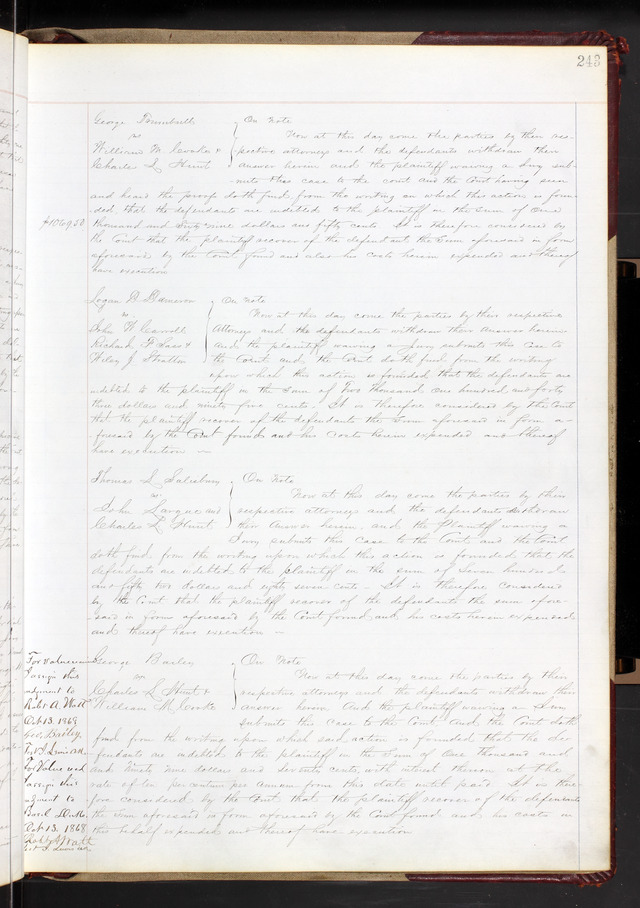 243
George Turnbull } On Note
vs } Now at this day come the parties by their res-
William M Cooke & } pective attorneys and the defendants withdraw their
Charles L Hunt } answer herein and the plaintiff waiving a Jury sub-
mits this case to the court and the Court having seen
and heard the proofs doth find from the writing on which this action is foun-
ded that the defendants are indebted to the plaintiff in the sum of One
$1069.50 thousand and Sixty nine dollars and fifty cents It is therefore considered by
the Court that the plaintiff recover of the defendant the Sum aforesaid in form
aforesaid by the Court found and also his Costs herein expended and thereof
have execution
Logan D Dameron } On Note
vs } Now at this day come the parties by their respective
John W Carroll } Attorneys and the defendants withdraw their Answer herein
Richard F & } And the plaintiff waiving a Jury submits this Case to
Wiley J Stratton } the Court and the Court doth find from the writing
upon which this action is founded that the defendants are
indebted to the plaintiff in the Sum of Two thousand one hundred and forty
three dollars and ninety five cents. It is therefore considered by the Court
that the plaintiff recover of the defendants the Sum aforesaid in form a-
foresaid by the Court found and his Costs herein expended and thereof
have execution —
Thomas L Salisbury } On Note
vs. } Now at this day come the parties by their
John and } respective attorneys and the defendants withdraw
Charles L Hunt } their Answer herein and the Plaintiff waiving a
Jury submits this Case to the Court and the Court
doth find from the writing upon which this action is founded that the
defendants are indebted to the plaintiff in the sum of Seven hundred
and fifty two dollars and eighty seven cents It is therefore Considered
by the Court that the plaintiff recover of the defendants the sum afore-
said in form aforesaid by the Court found and his costs herein expended
and thereof have execution —
George Bailey } On Note
vs } Now at this day come the parties by their
Charles L Hunt & } respective attorneys and the defendants withdraw their
William M Cooke } answer herein And the plaintiff waiving a Jury
submits this Case to the Court And the Court doth
find from the writing upon which said action is founded that the de-
fendants are indebted to the plaintiff in the Sum of One Thousand and
and Ninety Nine dollars and Seventy cents with interest thereon at the
rate of ten per centum per annum from this date until paid It is there-
fore considered by the Court that the plaintiff recover of the defendants
the Sum aforesaid in form aforesaid by the Court found and his costs in
this behalf expended and thereof have execution
For Value
I assign this
judgment to
Robt A. Watt
Oct 13. 1868
Geo. Bailey.
For Value recd
I assign this
judgment to
Basil
Oct 13. 1868
Robt A Watt